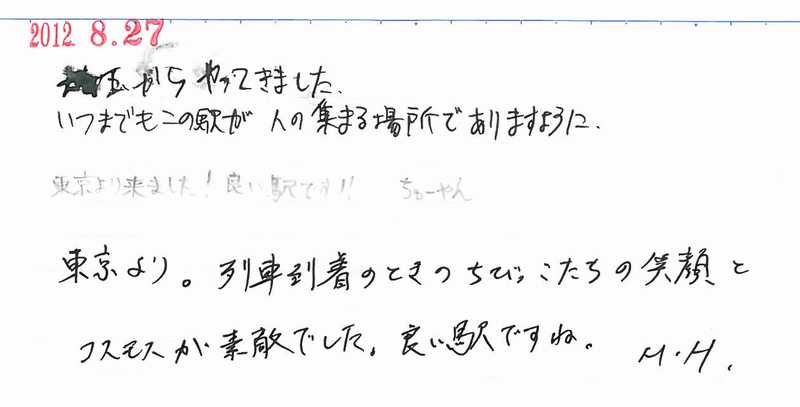 2012 8.27
玉からやってきました.
いつまでもこの駅が 人の集まる場所でありますように.
東京より来ました! 良い駅です!! ちゅーやん
東京より。列車到着のときのちびっこたちの笑顔と
コスモスが素敵でした。良い駅ですね。 M.H.